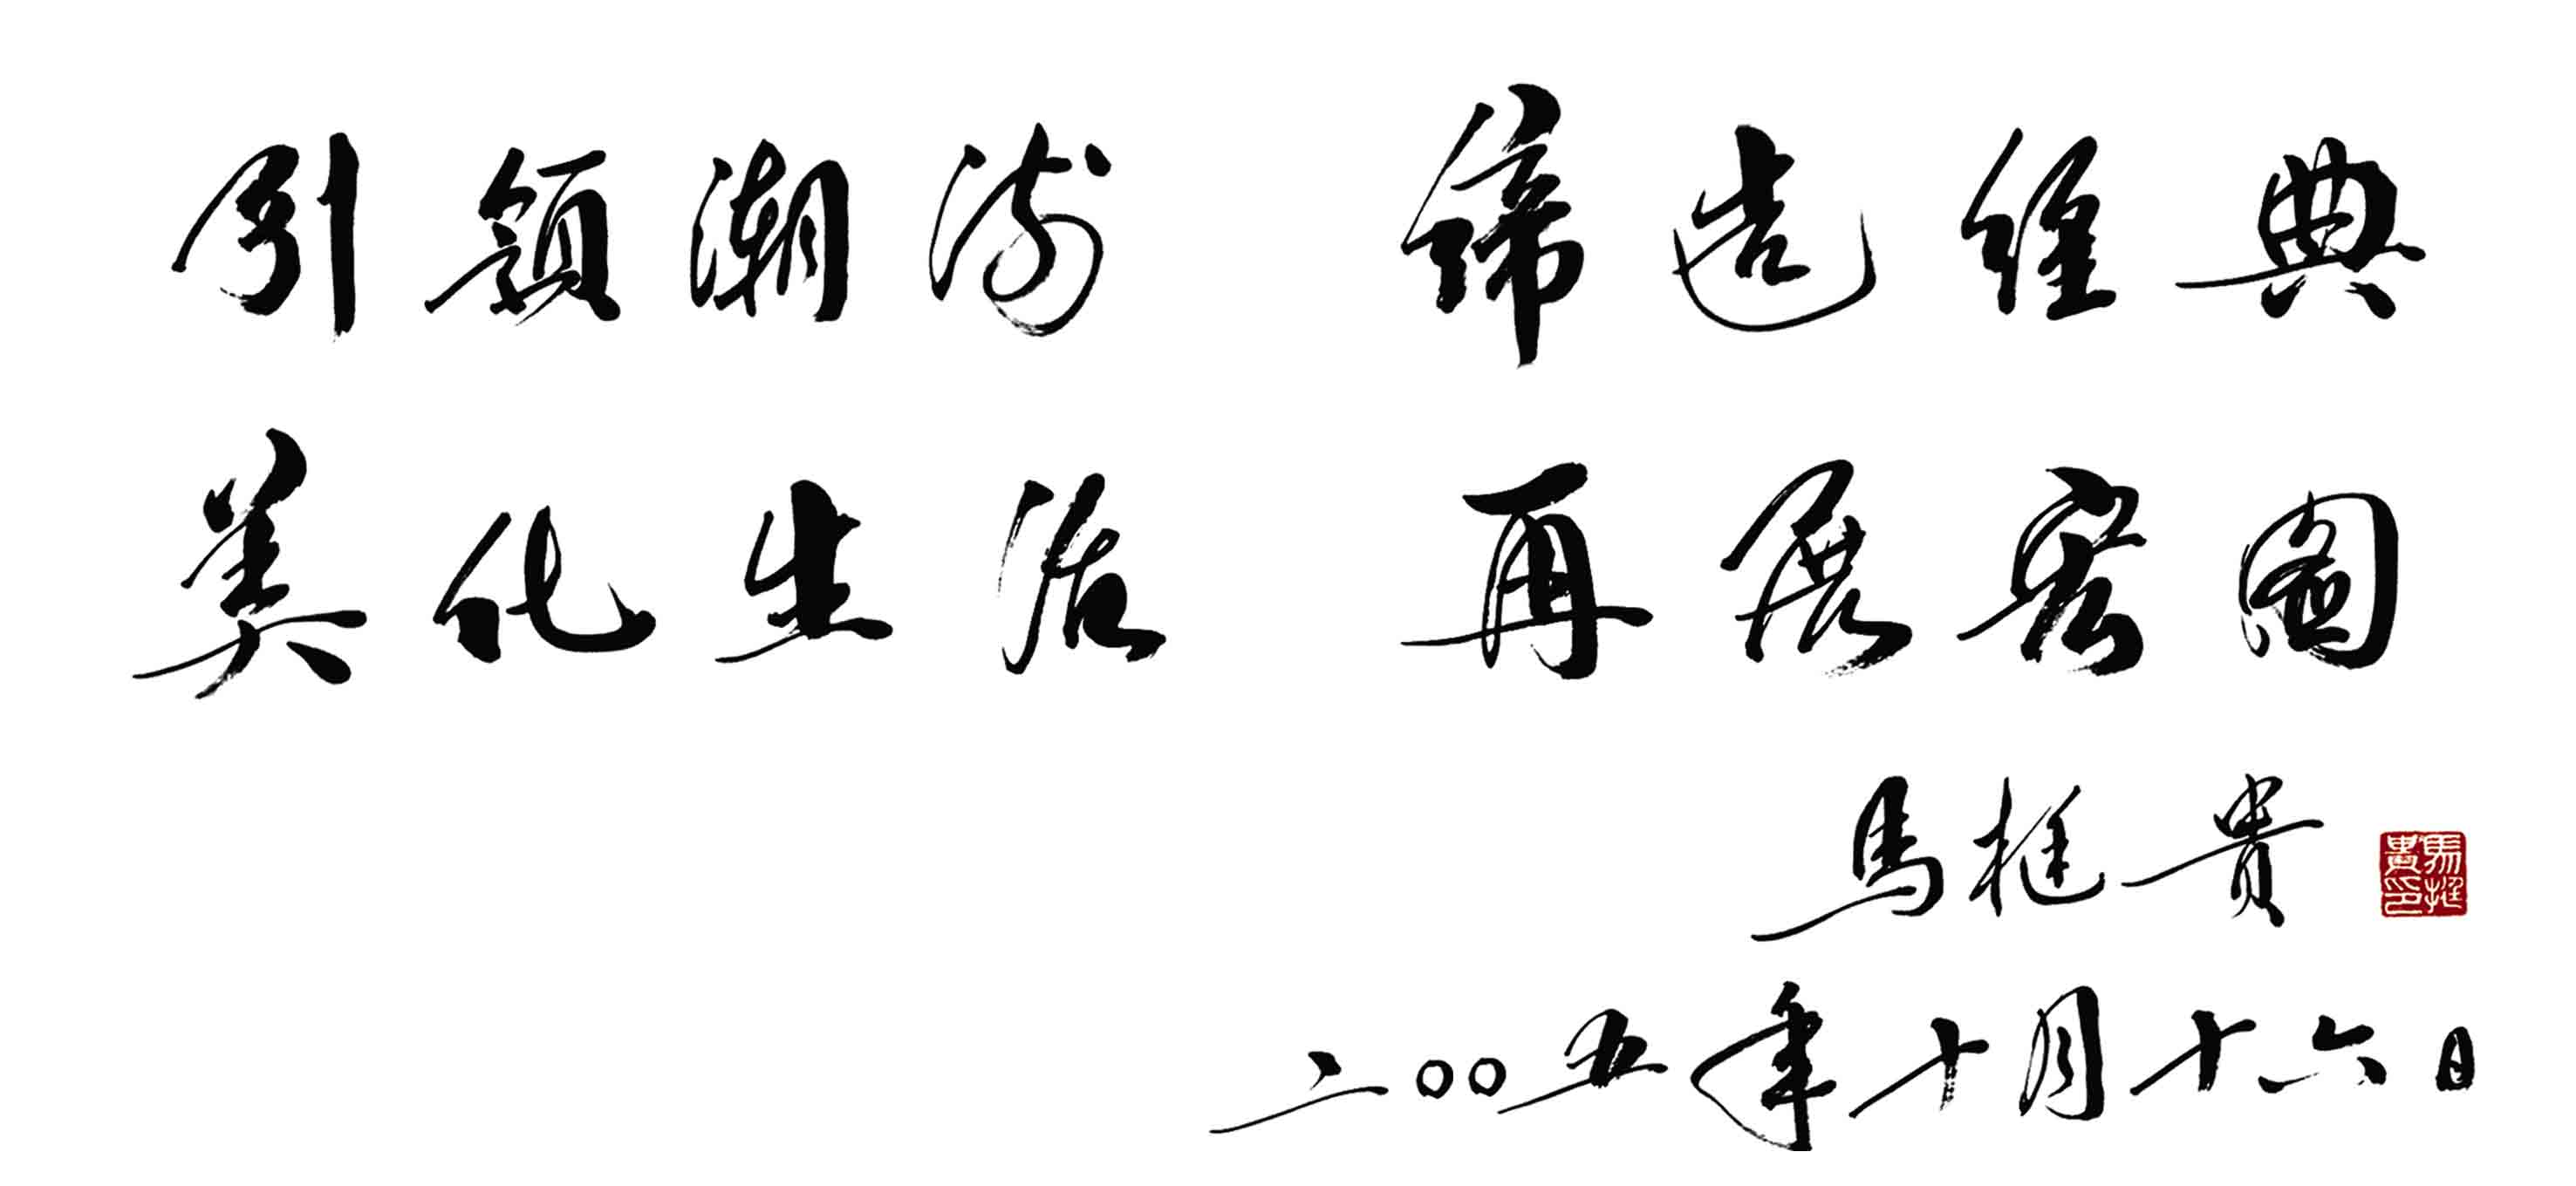 引領潮流 締造經典
美化生活 再展宏圖
馬挺貴
馬挺貴印
二〇〇五年十月十六日